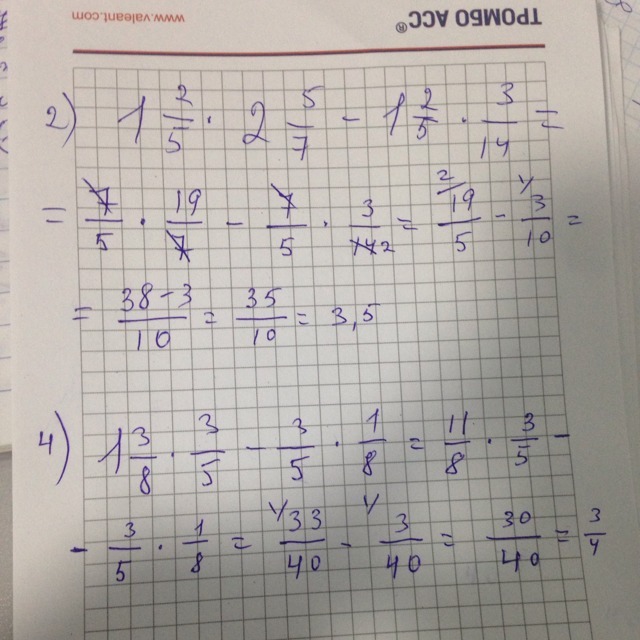 ТРОМБО АСС® www.valeant.com
2) 1 2/5 · 2 5/7 - 1 2/5 · 3/14 =
= 7/5 · 19/7 - 7/5 · 3/14 2 = 2/ 19/5 - 1/ 3/10 =
= 38-3/10 = 35/10 = 3,5
4) 1 3/8 · 3/5 - 3/5 · 1/8 = 11/8 · 3/5 -
- 3/5 · 1/8 = 1/ 33/40 - 1/ 3/40 = 30/40 = 3/4